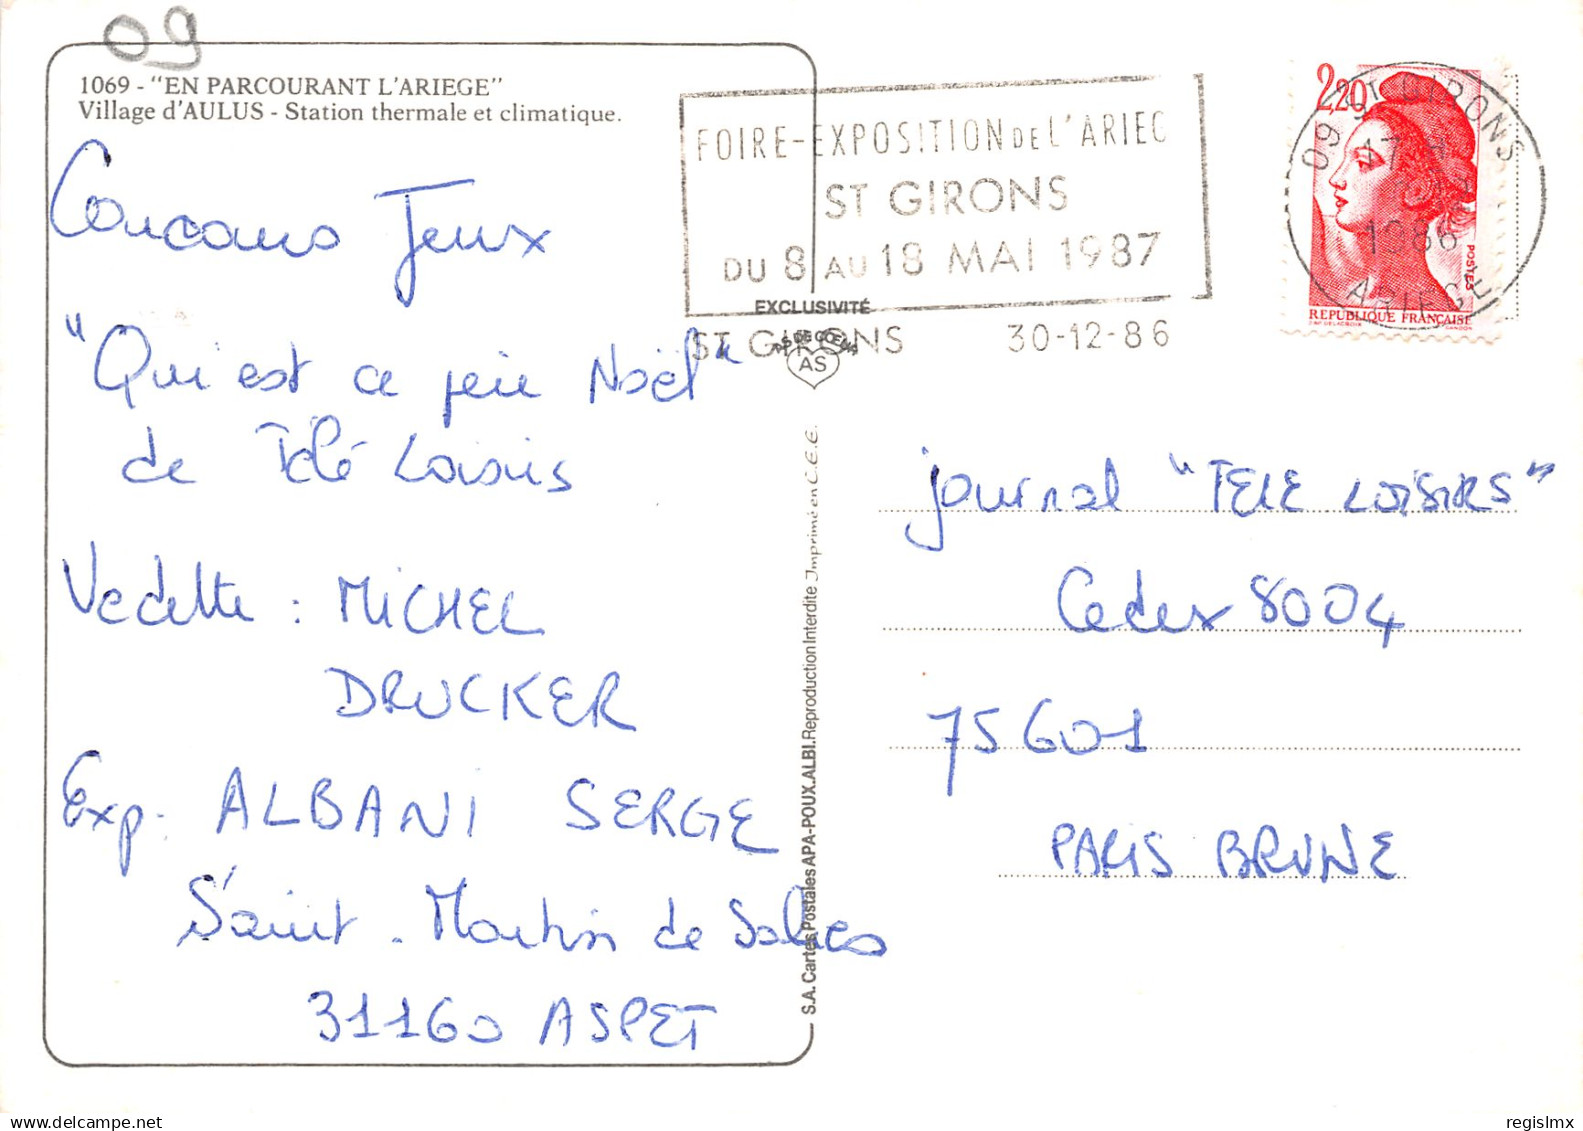 09
1069 - "EN PARCOURANT L'ARIEGE"
Village d'AULUS - Station thermale et climatique.
Concours Jeux
"Qui est ce père Noël"
de Télé Loisirs
Vedette : MICHEL
DRUCKER
Exp. ALBANI SERGE
Saint-Martin de Salies
31160 ASPET
FOIRE-EXPOSITION DE L'ARIEG
ST GIRONS
DU 8 AU 18 MAI 1987
ST GIRONS 30-12-86
EXCLUSIVITÉ
AS DE CŒUR
AS
S.A. Cartes Postales APA-POUX.ALBI. Reproduction Interdite Imprimé en C.E.E.
2,20
POSTES
REPUBLIQUE FRANÇAISE
D'AP. DELACROIX GANDON
09 ST GIRONS
17 H
1986
ARIEGE
journal "TELE LOISIRS"
Cedex 8004
75601
PARIS BRUNE
regislmx